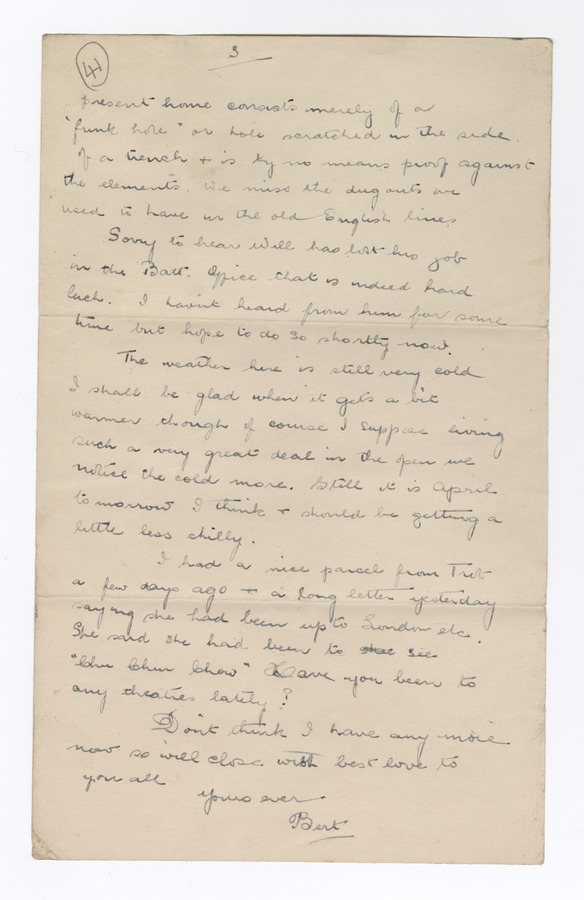 41
3
present home consists merely of a
"funk hole" or hole scratched in the side
of a trench + is by no means proof against
the elements. We miss the dugouts we
used to have in the old English lines
Sorry to hear Will has lost his job
in the Batt. Office that is indeed hard
luck. I havn't heard from him for some
time but hope to do so shortly now.
The weather here is still very cold
I shall be glad when it gets a bit
warmer though of course I suppose living
such a very great deal in the open we
notice the cold more. Still it is April
tomorrow I think + should be getting a
little less chilly.
I had a nice parcel from Trot
a few days ago + a long letter yesterday
saying she had been up to London etc.
She said she had been to she see
"Chu Chin Chow" Have you been to
any theatres lately?
Don't think I have any more
now so will close with best love to
you all
yours ever
Bert